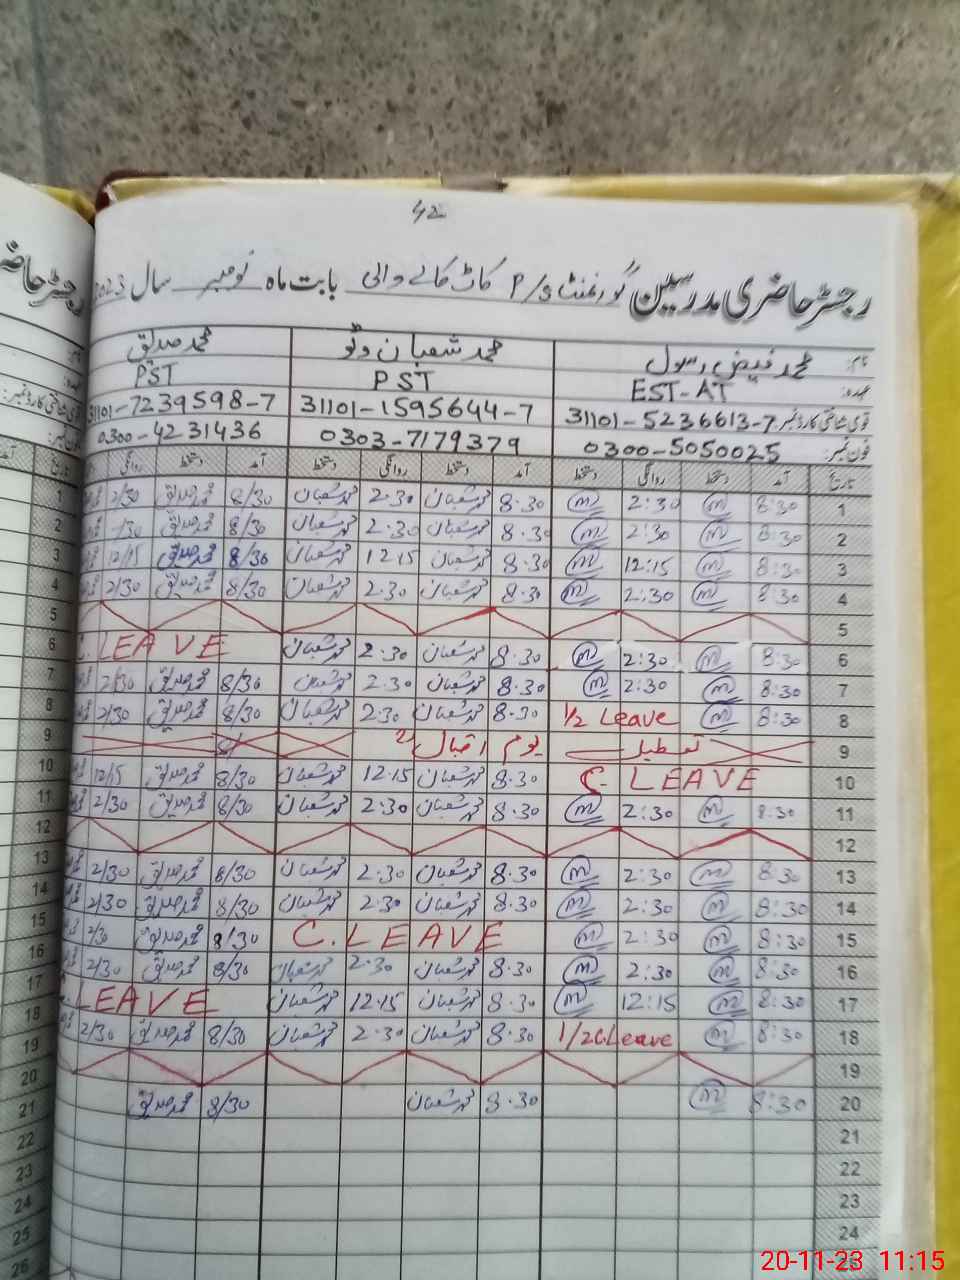 42
رجسٹر حاضری مدرسین گورنمنٹ P/S کاٹ کالے والی بابت ماہ نومبر سال 2023
نام: محمد فیض رسول محمد شعبان وٹو محمد صدیق
عہدہ: EST-AT PST PST
قومی شناختی کارڈ نمبر: 31101-5236613-7 31101-1595644-7 31101-7239598-7
فون نمبر: 0300-5050025 0303-7179379 0300-4231436
تاریخ آمد دستخط روانگی دستخط آمد دستخط روانگی دستخط آمد دستخط روانگی
1 8:30 m 2:30 m 8.30 محمد شعبان 2.30 محمد شعبان 8/30 محمد صدیق 2/30
2 8:30 m 2:30 m 8.30 محمد شعبان 2.30 محمد شعبان 8/30 محمد صدیق /30
3 8:30 m 12:15 m 8.30 محمد شعبان 12.15 محمد شعبان 8/30 محمد صدیق 12/15
4 8:30 m 2:30 m 8.30 محمد شعبان 2.30 محمد شعبان 8/30 محمد صدیق 2/30
5
6 8:30 m 2:30 m 8.30 محمد شعبان 2.30 محمد شعبان C.LEAVE
7 8:30 m 2:30 m 8.30 محمد شعبان 2.30 محمد شعبان 8/30 محمد صدیق 2/30
8 8:30 m 1/2 Leave 8.30 محمد شعبان 2.30 محمد شعبان 8/30 محمد صدیق 2/30
9 تعطیل یوم اقبال 8/
10 C. LEAVE 8.30 محمد شعبان 12.15 محمد شعبان 8/30 محمد صدیق 12/15
11 8:30 m 2:30 m 8.30 محمد شعبان 2.30 محمد شعبان 8/30 محمد صدیق 2/30
12
13 8:30 m 2:30 m 8.30 محمد شعبان 2.30 محمد شعبان 8/30 محمد صدیق 2/30
14 8:30 m 2:30 m 8.30 محمد شعبان 2.30 محمد شعبان 8/30 محمد صدیق 2/30
15 8:30 m 2:30 m C.LEAVE 8/30 محمد صدیق 2/30
16 8:30 m 2:30 m 8.30 محمد شعبان 2.30 محمد شعبان 8/30 محمد صدیق 2/30
17 8:30 m 12:15 m 8.30 محمد شعبان 12.15 محمد شعبان LEAVE
18 8:30 m 1/2 C.Leave 8.30 محمد شعبان 2.30 محمد شعبان 8/30 محمد صدیق 2/30
19
20 8:30 m 8.30 محمد شعبان 8/30 محمد صدیق
21
22
23
24
25
20-11-23 11:15